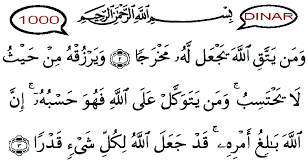 1000 بِسْمِ اللَّهِ الرَّحْمَٰنِ الرَّحِيمِ DINAR
وَمَن يَتَّقِ اللَّهَ يَجْعَل لَّهُۥ مَخْرَجًا ﴿٢﴾ وَيَرْزُقْهُ مِنْ حَيْثُ
لَا يَحْتَسِبُ ۚ وَمَن يَتَوَكَّلْ عَلَى اللَّهِ فَهُوَ حَسْبُهُۥٓ ۚ إِنَّ
اللَّهَ بَالِغُ أَمْرِهِۦ ۚ قَدْ جَعَلَ اللَّهُ لِكُلِّ شَىْءٍ قَدْرًا ﴿٣﴾